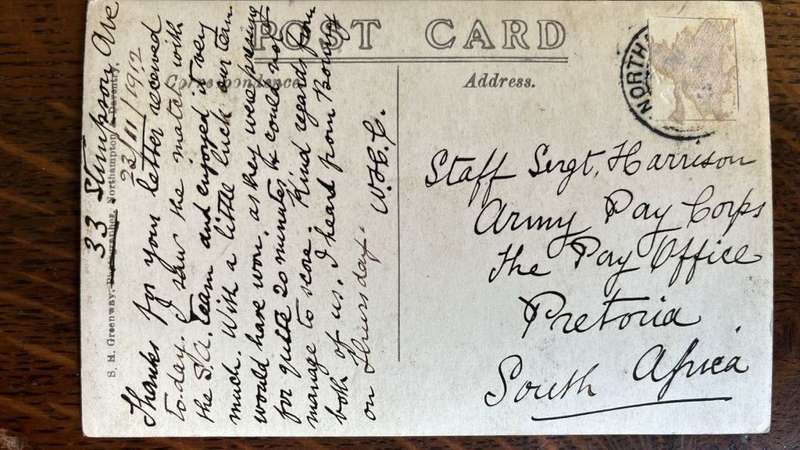 POST CARD
Correspondence.
Address.
33 Stimpson Ave
23/11/1912
Thanks for your letter received
to-day. I saw the match with
the S.A. team and enjoyed it very
much. With a little luck our team
would have won, as they were pressing
for quite 20 minutes & could not
manage to score. Kind regards from
both of us. I heard from
on Thursday.
W.H.C.
Staff Sergt. Harrison
Army Pay Corps
The Pay Office
Pretoria
South Africa
NORTH
S. H. Greenway, Northampton & Daventry.